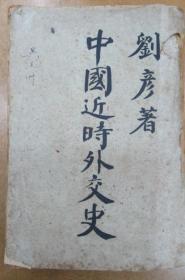 劉彦著
中國近時外交史